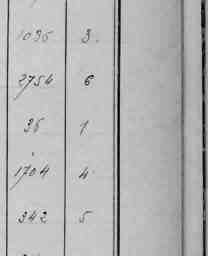 1035 3.
2754 6
36 1
1704 4
342 5